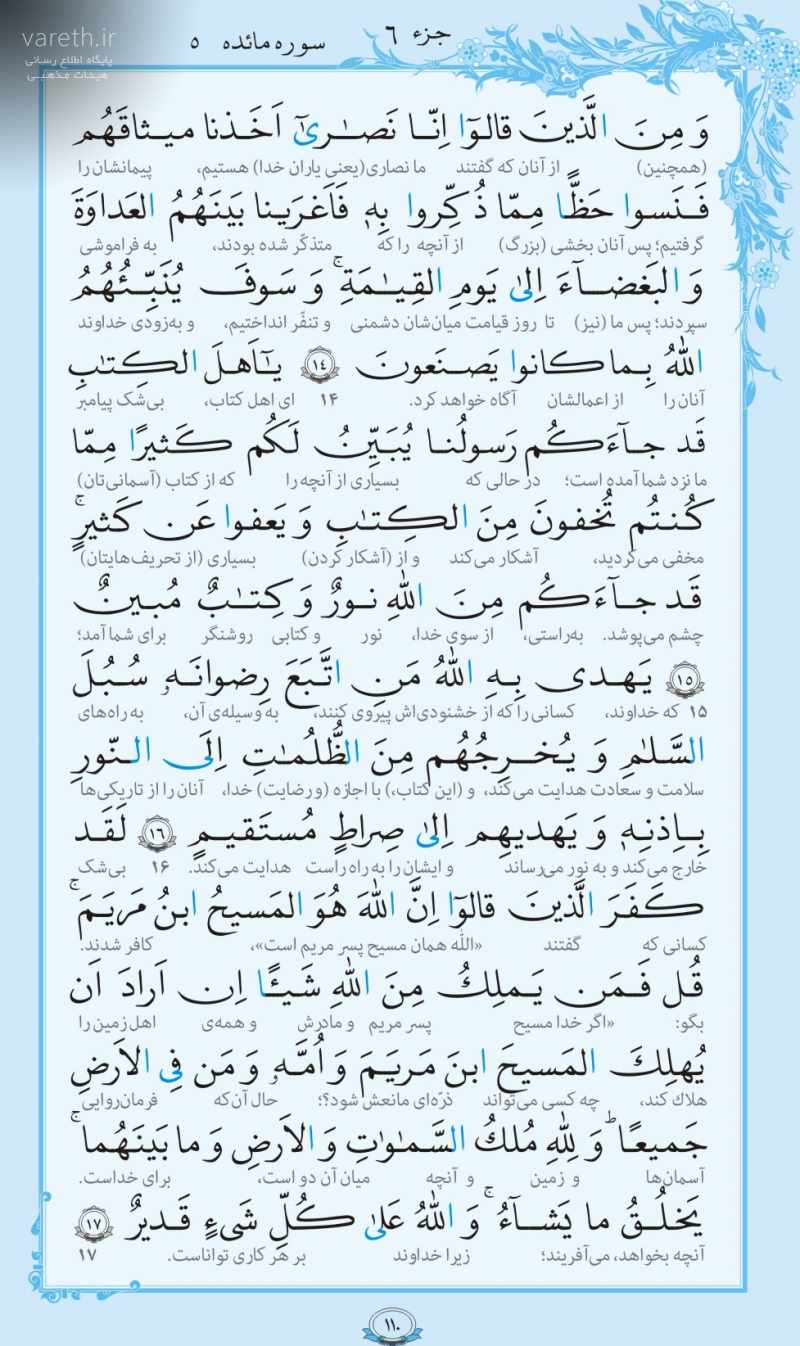 vareth.ir
پایگاه اطلاع رسانی
هیئات مذهبی
جزء ۶
سوره مائده ۵
وَ مِنَ الَّذینَ قالوٓا اِنّا نَصـٰرىٰٓ اَخَذنا میثاقَهُم
(همچنین) از آنان که گفتند ما نصاری(یعنی یاران خدا) هستیم، پیمانشان را
فَنَسوا حَظًّا مِمّا ذُکِّروا بِهٖ فَاَغرَینا بَینَهُمُ العَداوَةَ
گرفتیم؛ پس آنان بخشی (بزرگ) از آنچه را که متذکّر شده بودند، به فراموشی
وَ البَغضـآءَ اِلىٰ یَومِ القِیـٰمَةِ ۚ وَ سَوفَ یُنَبِّـئُهُمُ
سپردند؛ پس ما (نیز) تا روز قیامت میان‌شان دشمنی و تنفّر انداختیم، و به‌زودی خداوند
اللهُ بِـما کانوا یَصـنَعونَ ﴿۱۴﴾ یـٰٓاَهـلَ الـکِتـٰبِ
آنان را از اعمالشان آگاه خواهد کرد. ۱۴ ای اهل کتاب، بی‌شک پیامبر
قَد جـآءَکُم رَسولُنـا یُبَیِّنُ لَکُم کَـثیرًا مِمّا
ما نزد شما آمده است؛ در حالی که بسیاری از آنچه را که از کتاب (آسمانی‌تان)
کُنـتُم تُخفونَ مِنَ الـکِتـٰبِ وَ یَعفوا عَن کَثیرٍ ۚ
مخفی می‌کردید، آشکار می‌کند و از (آشکار کردن) بسیاری (از تحریف‌هایتان)
قَـد جـآءَکُم مِـنَ اللهِ نـورٌ وَ کِـتـٰبٌ مُـبیـنٌ
چشم می‌پوشد. به‌راستی، از سوی خدا، نور و کتابی روشنگر برای شما آمد؛
﴿۱۵﴾ یَـهـدی بِـهِ اللهُ مَنِ اتَّبَعَ رِضوانَهٗ سُـبُلَ
۱۵ که خداوند، کسانی را که از خشنودی‌اش پیروی کنند، به وسیله‌ی آن، به راه‌های
السَّلـٰمِ وَ یُـخـرِجُهُم مِنَ الظُّلُمـٰتِ اِلَى الـنّورِ
سلامت و سعادت هدایت می‌کند، و (این کتاب،) با اجازه (و رضایت) خدا، آنان را از تاریکی‌ها
بِـاِذنِهٖ وَ یَهدیهِم اِلىٰ صِراطٍ مُستَقیـمٍ ﴿۱۶﴾ لَقَـد
خارج می‌کند و به نور می‌رساند و ایشان را به راه راست هدایت می‌کند. ۱۶ بی‌شک
کَـفَرَ الَّذینَ قالوٓا اِنَّ اللهَ هُوَ المَسیحُ ابنُ مَریَمَ ۚ
کسانی که گفتند «الله همان مسیح پسر مریم است»، کافر شدند.
قُـل فَـمَن یَـملِکُ مِنَ اللهِ شَیـئًا اِن اَرادَ اَن
بگو: «اگر خدا مسیح پسر مریم و مادرش و همه‌ی اهل زمین را
یُهلِکَ المَسیحَ ابنَ مَریَمَ وَ اُمَّهٗ وَ مَن فِی الاَرضِ
هلاك کند، چه کسی می‌تواند ذرّه‌ای مانعش شود؟؛ حال آن‌که فرمان‌روایی
جَمیعًا ؕ وَ لِلّٰهِ مُلکُ السَّمـٰوٰتِ وَ الاَرضِ وَ ما بَینَهُما ۚ
آسمان‌ها و زمین و آنچه میان آن دو است، برای خداست.
یَخلُـقُ ما یَشـآءُ ۚ وَ اللهُ عَلىٰ کُلِّ شَیءٍ قَـدیرٌ ﴿۱۷﴾
آنچه بخواهد، می‌آفریند؛ زیرا خداوند بر هر کاری تواناست. ۱۷
۱۱۰